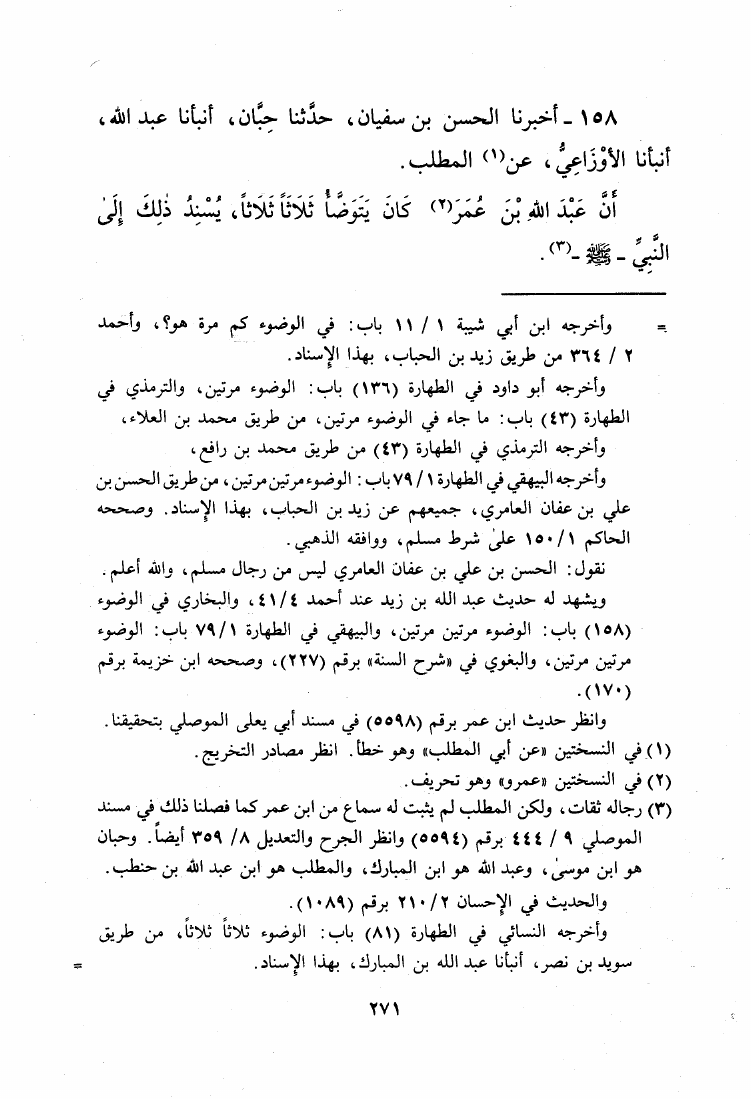 ١٥٨ ـ أخبرنا الحسن بن سفيان، حدَّثنا حِبَّان، أنبأنا عبد الله،
أنبأنا الأَوْزَاعِيُّ، عن(١) المطلب.
أَنَّ عَبْدَ اللهِ بْنَ عُمَرَ(٢) كَانَ يَتَوَضَّأُ ثَلَاثاً ثَلَاثاً، يُسْنِدُ ذٰلِكَ إِلَىٰ
النَّبِيِّ ـ ﷺ ـ(٣).
= وأخرجه ابن أبي شيبة ١ / ١١ باب: في الوضوء كم مرة هو؟، وأحمد
٢ / ٣٦٤ من طريق زيد بن الحباب، بهذا الإسناد.
وأخرجه أبو داود في الطهارة (١٣٦) باب: الوضوء مرتين، والترمذي في
الطهارة (٤٣) باب: ما جاء في الوضوء مرتين، من طريق محمد بن العلاء،
وأخرجه الترمذي في الطهارة (٤٣) من طريق محمد بن رافع،
وأخرجه البيهقي في الطهارة ١/ ٧٩ باب: الوضوء مرتين مرتين، من طريق الحسن بن
علي بن عفان العامري، جميعهم عن زيد بن الحباب، بهذا الإسناد. وصححه
الحاكم ١/ ١٥٠ علىٰ شرط مسلم، ووافقه الذهبي.
نقول: الحسن بن علي بن عفان العامري ليس من رجال مسلم، والله أعلم.
ويشهد له حديث عبد الله بن زيد عند أحمد ٤١/٤، والبخاري في الوضوء
(١٥٨) باب: الوضوء مرتين مرتين، والبيهقي في الطهارة ٧٩/١ باب: الوضوء
مرتين مرتين، والبغوي في «شرح السنة» برقم (٢٢٧)، وصححه ابن خزيمة برقم
(١٧٠).
وانظر حديث ابن عمر برقم (٥٥٩٨) في مسند أبي يعلى الموصلي بتحقيقنا.
(١) في النسختين «عن أبي المطلب» وهو خطأ. انظر مصادر التخريج.
(٢) في النسختين «عمرو» وهو تحريف.
(٣) رجاله ثقات، ولكن المطلب لم يثبت له سماع من ابن عمر كما فصلنا ذلك في مسند
الموصلي ٩ / ٤٤٤ برقم (٥٥٩٤) وانظر الجرح والتعديل ٨/ ٣٥٩ أيضاً. وحبان
هو ابن موسىٰ، وعبد الله هو ابن المبارك، والمطلب هو ابن عبد الله بن حنطب.
والحديث في الإحسان ٢١٠/٢ برقم (١٠٨٩).
وأخرجه النسائي في الطهارة (٨١) باب: الوضوء ثلاثاً ثلاثاً، من طريق
سويد بن نصر، أنبأنا عبد الله بن المبارك، بهذا الإسناد. =
٢٧١